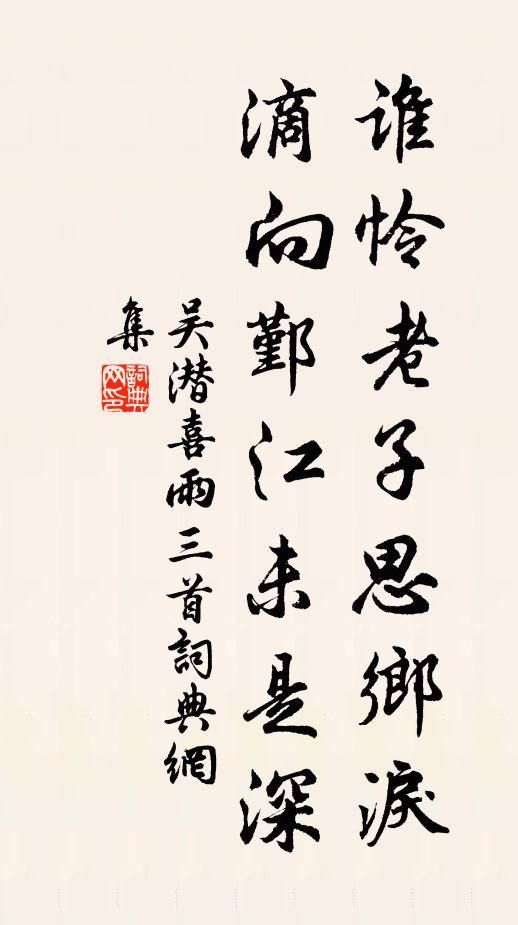 谁怜老子思鄉淚
滴向鄞江未是深
吴潜喜雨三首詞典網
集
詞典网印